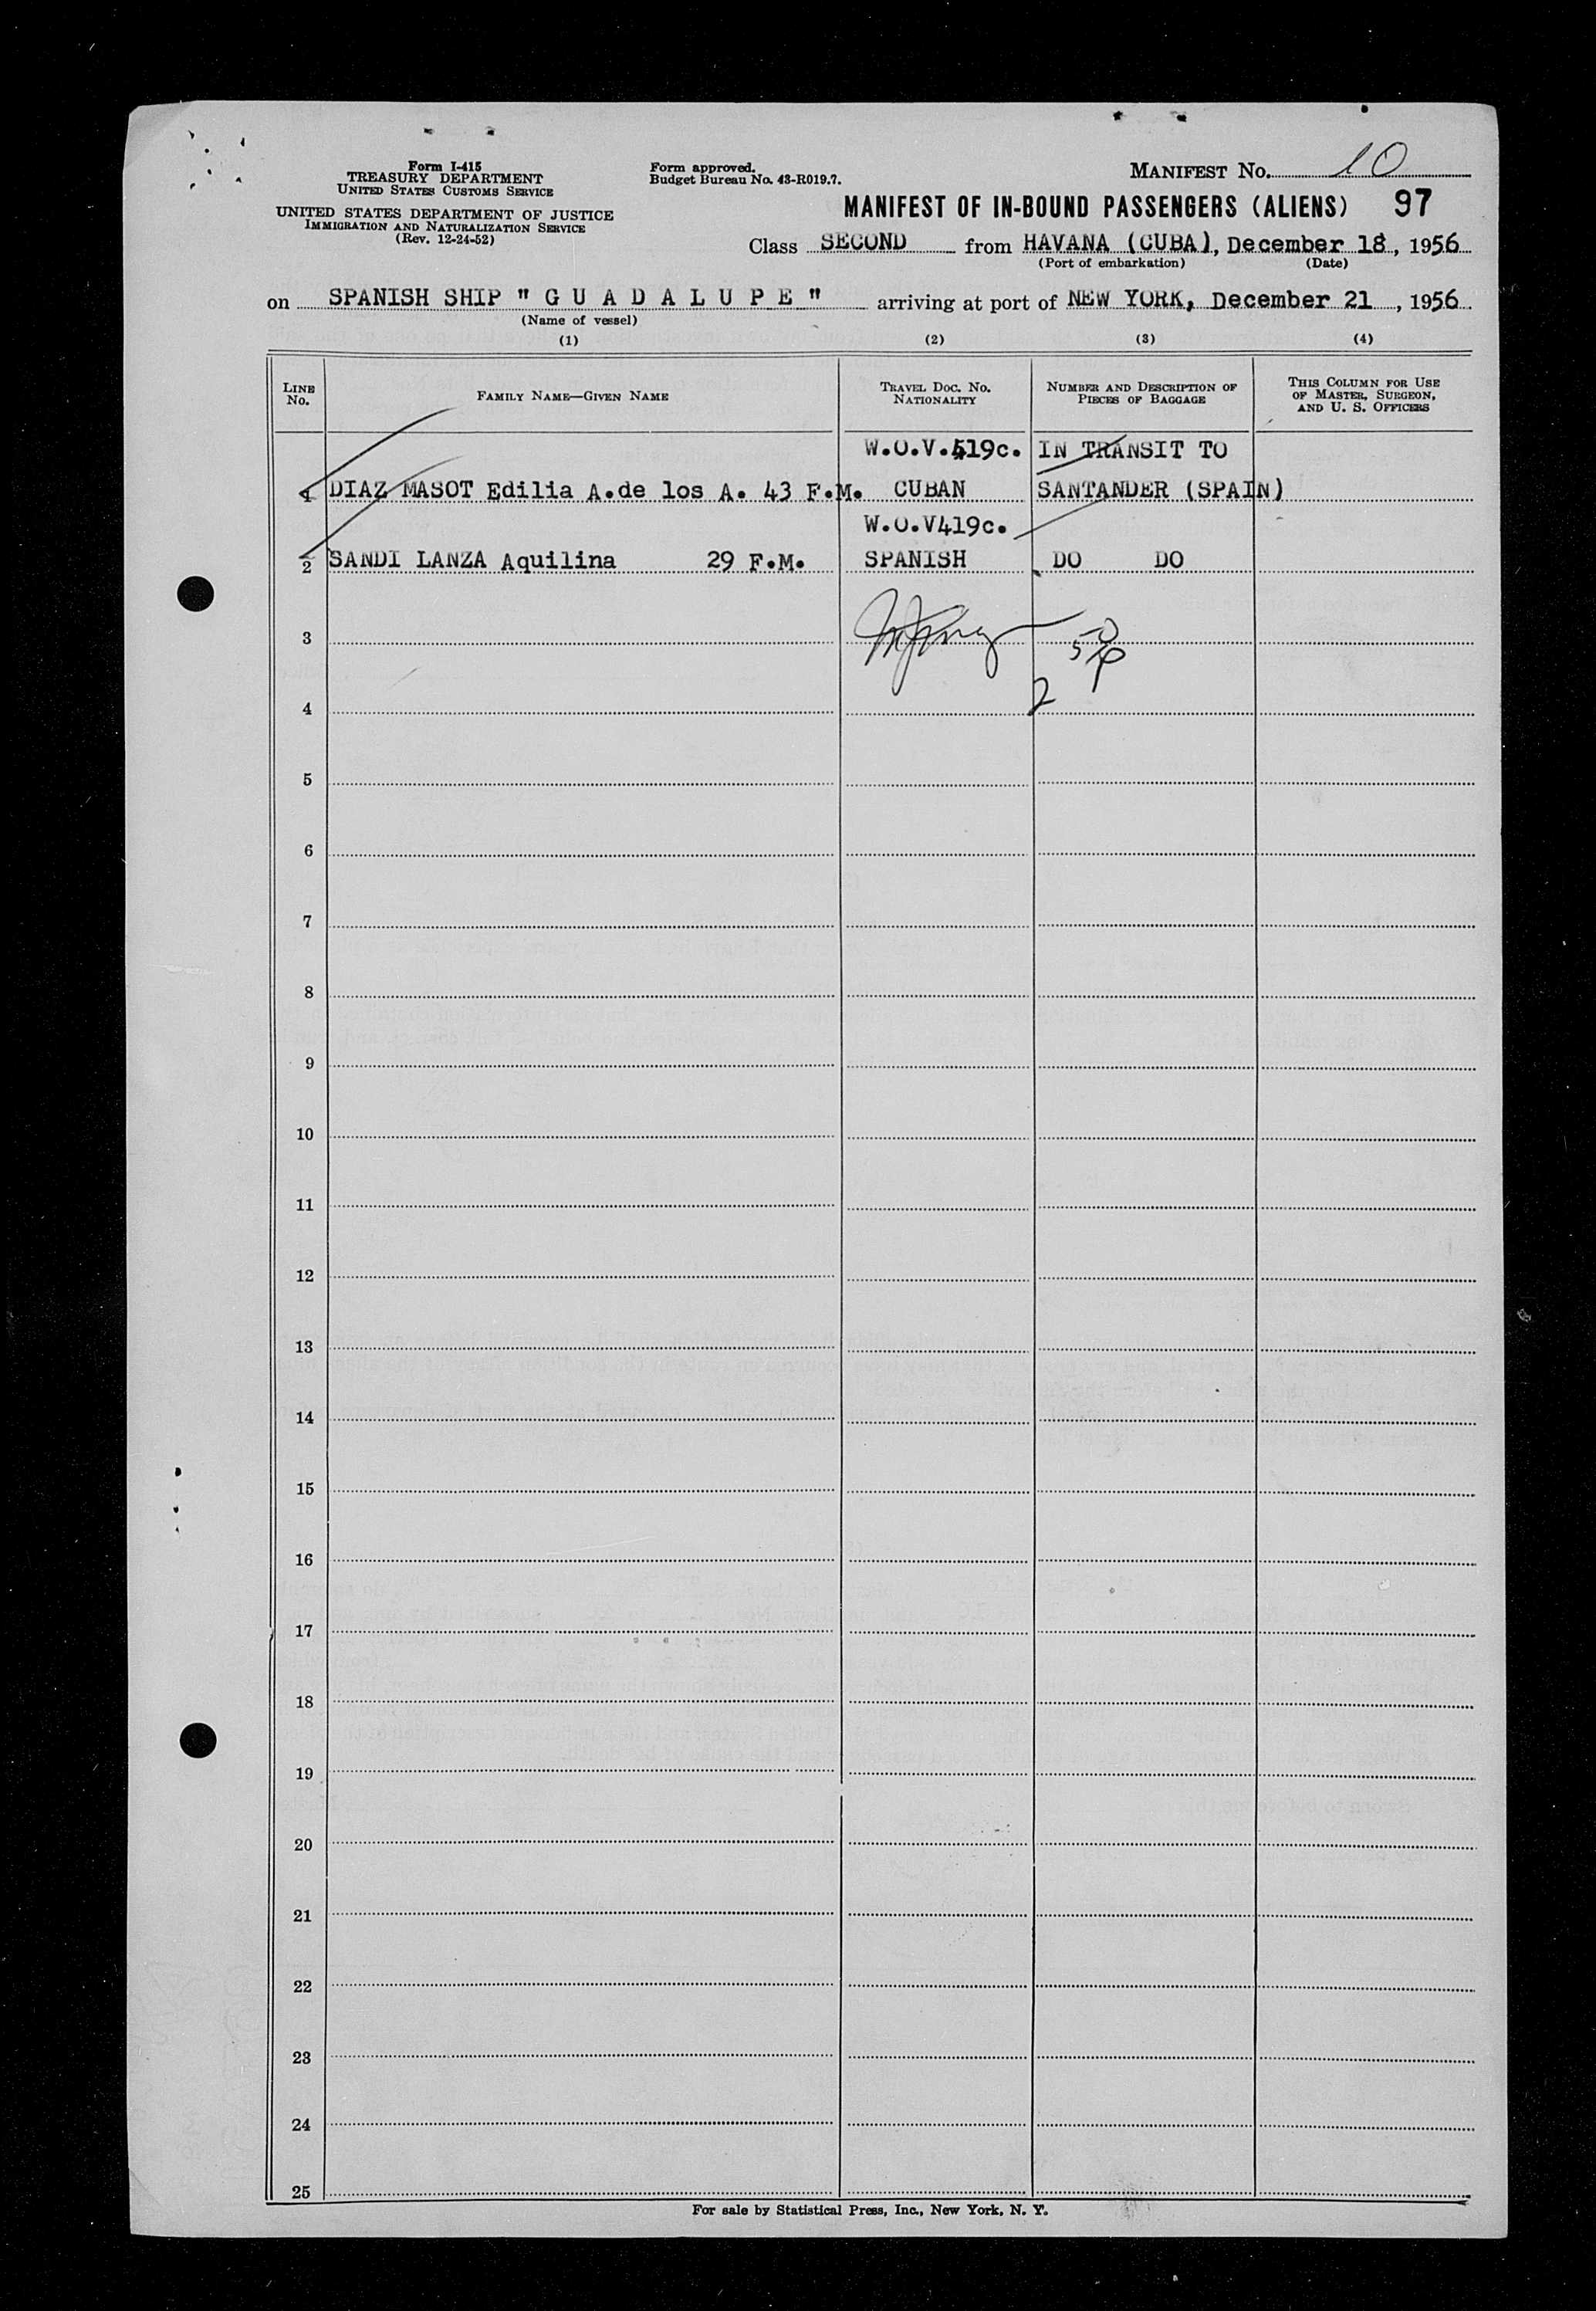 Form I-415
TREASURY DEPARTMENT
UNITED STATES CUSTOMS SERVICE
UNITED STATES DEPARTMENT OF JUSTICE
IMMIGRATION AND NATURALIZATION SERVICE
(Rev. 12-24-52)
Form approved.
Budget Bureau No. 43-R019.7.
MANIFEST No. 10
MANIFEST OF IN-BOUND PASSENGERS (ALIENS) 97
Class SECOND from HAVANA (CUBA), December 18, 1956
(Port of embarkation) (Date)
on SPANISH SHIP " G U A D A L U P E " arriving at port of NEW YORK, December 21, 1956
(Name of vessel)
(1) (2) (3) (4)
LINE No. FAMILY NAME—GIVEN NAME TRAVEL DOC. No. NATIONALITY NUMBER AND DESCRIPTION OF PIECES OF BAGGAGE THIS COLUMN FOR USE OF MASTER, SURGEON, AND U. S. OFFICERS
W.O.V.419c. IN TRANSIT TO
1 DIAZ MASOT Edilia A.de los A. 43 F.M. CUBAN SANTANDER (SPAIN)
W.O.V419c.
2 SANDI LANZA Aquilina 29 F.M. SPANISH DO DO
3
2
4
5
6
7
8
9
10
11
12
13
14
15
16
17
18
19
20
21
22
23
24
25
For sale by Statistical Press, Inc., New York, N. Y.